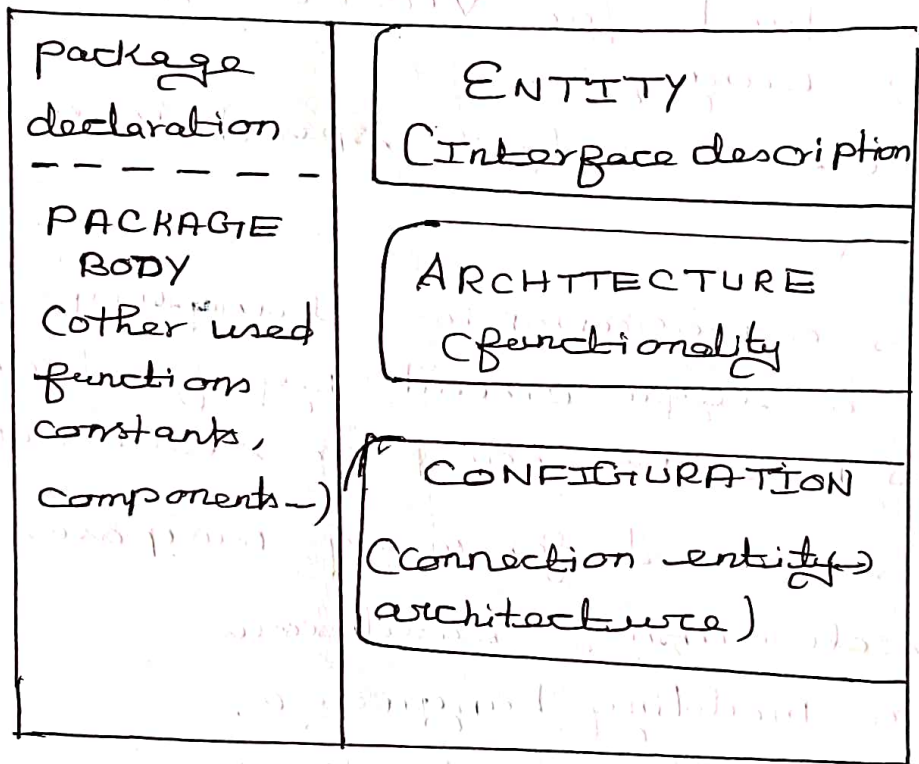 package
declaration
- - - - - -
PACKAGE
BODY
(other used
functions
constants,
components-)
ENTITY
(Interface description
ARCHITECTURE
(functionality
CONFIGURATION
(connection entity→
architecture)